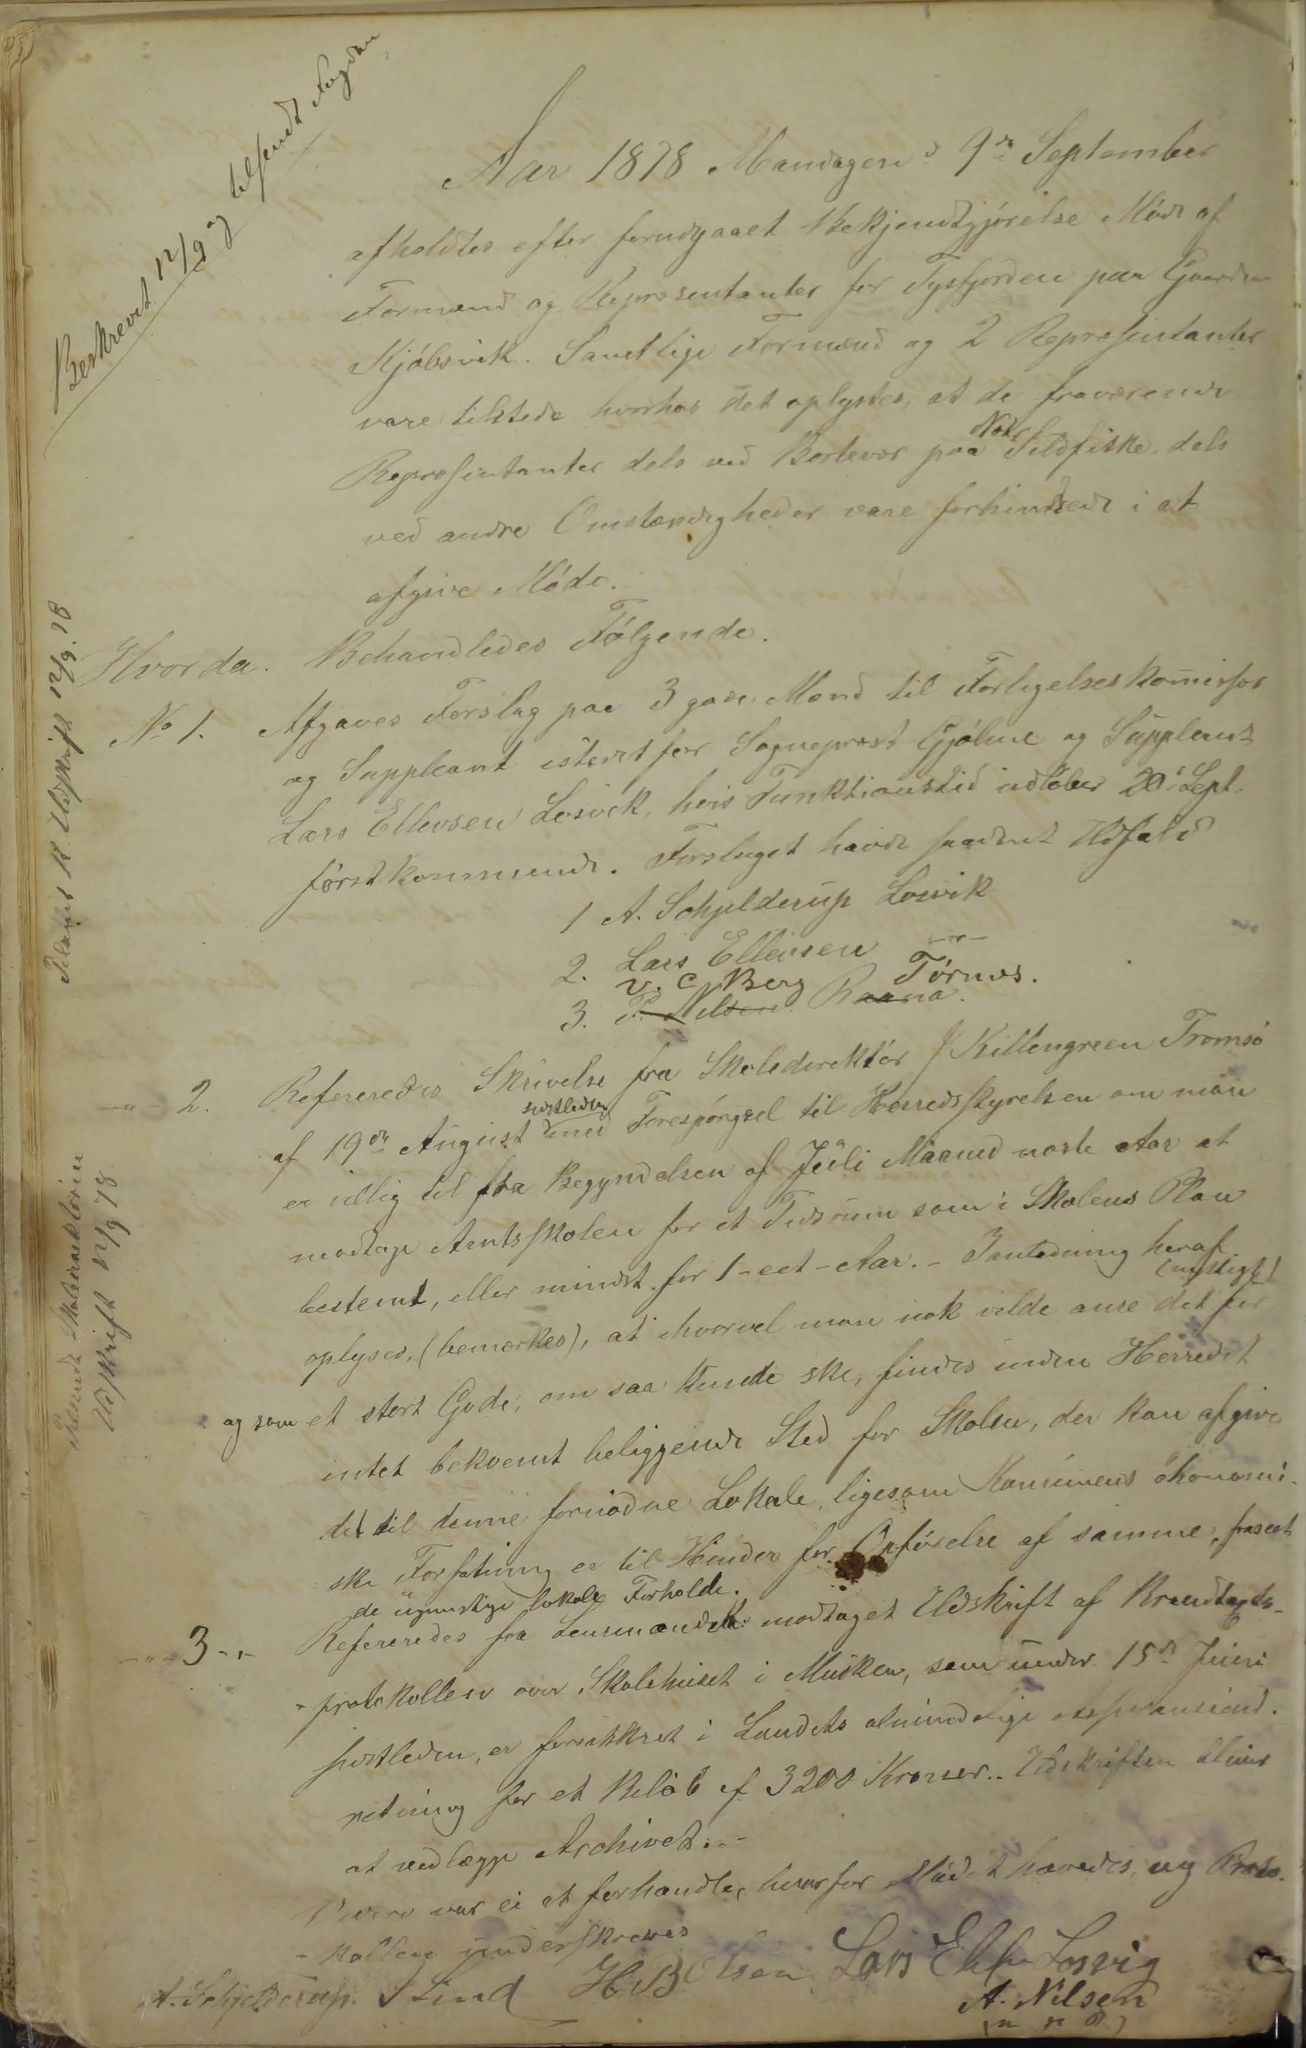 Beskrevet 12/9 og tilsendt Fogden
Aar 1878 Mandagen d 9de September
afholdtes efter forudgaaet Bekjendtgjørelse Møde af
Formænd og Representanter for Tysfjorden paa Gaarden
Kjøbsvik. Samtlige Formænd og 2 Repræsentanter
vare tilstede hvorhos det oplystes, at de fraværende
Repræsentanter dels ved Bortevær paa Nots Sildfiske, dels
ved andre Omstændigheder vare forhindrede i at
afgive Møde.
Hvorda. Behandledes Følgende.
No 1. Afgaves Forslag paa 3 gode Mænd til Forligelseskomissær
og Suppleant istedetfor Sogneprest Gjølme og Suppleant
Lars Ellevsen Losvik, hvis Funktionstid udløber 20de Sept.
førstkommende. Forslaget havde saadant Udfald
1 A. Schjelderup Losvik
2. Lars Ellevsen -"-
V. C Berg Tørnes.
3. P. Nilsen Raana.
-"- 2. Refereredes Skrivelse fra Skoledirektør J Killengreen Tromsø
af 19de August sidstleden med Forespørgsel til Herredsstyrelsen om man
er villig til fra Begyndelsen af Juli Maaned næste Aar at
modtage Amtsskolen for et Tidsrum som i Skolens Plan
bestemt, eller mindst for 1-eet-Aar.- I anledning heraf
oplyses, (bemærkes), at hvorvel man nok vilde anse det for (nyttigt)
og som et stort Gode, om saa kunde ske, findes inden Herredet
intet bekvemt beliggende Sted for Skolen, der kan afgive
det til denne fornødne Lokale, ligesom Kommunens økonomi-
ske Forfatning er til Hinder for Opførelse af samme, fraseet
de ugunstige lokale Forholde.
-"- 3 -"- Refereredes fra Lensmanden modtaget Udskrift af Brandtaxts-
protokollen over Skolehuset i Musken, som under 15de Juni
sidstleden, er forsikkret i Landets almindelige Assuranceind-
retning for et Beløb af 3200 Kroner.. Udskriften bliver
at vedlægge Archivet..-
Videre var ei at forhandle, hvorfor Mødet hævedes, og Proto-
kollen underskreves
A. Schjelderup. S Lind H B Olsen Lars Ellefs Losvig
A. Nilsen
(m p P)
Udskrift 12/9.78
Sendt Skoledirektøren
Udskrift 12/9 78